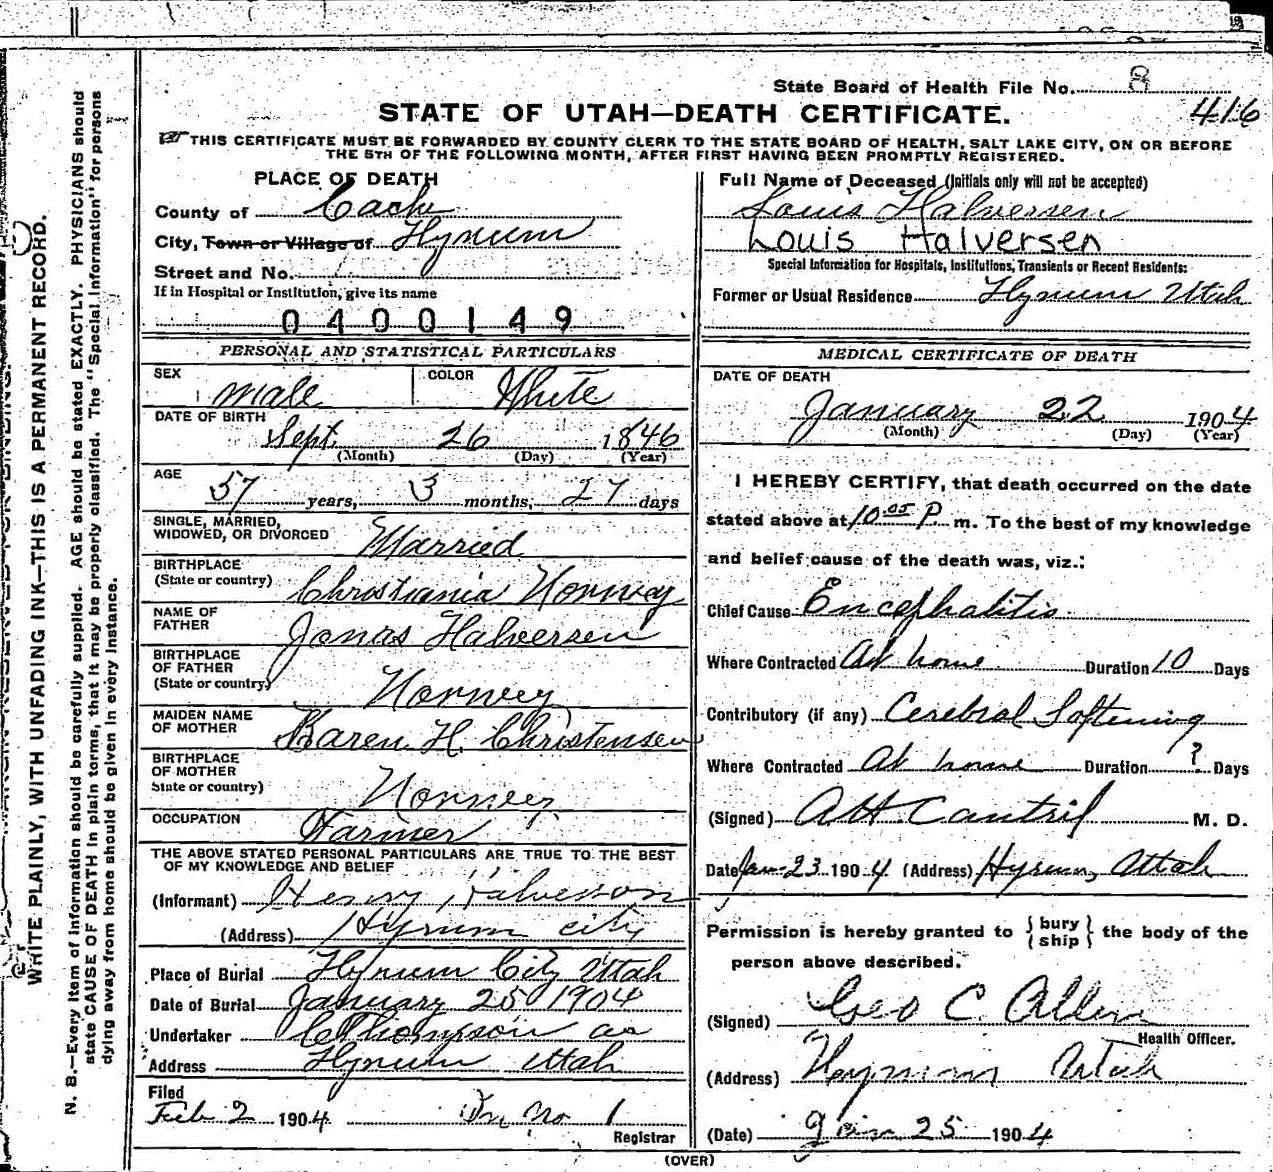 State Board of Health File No. 8
416
STATE OF UTAH—DEATH CERTIFICATE.
THIS CERTIFICATE MUST BE FORWARDED BY COUNTY CLERK TO THE STATE BOARD OF HEALTH, SALT LAKE CITY, ON OR BEFORE
THE 5TH OF THE FOLLOWING MONTH, AFTER FIRST HAVING BEEN PROMPTLY REGISTERED.
PLACE OF DEATH
County of Cache
City, Town or Village of Hyrum
Street and No.
If in Hospital or Institution, give its name
0400149
PERSONAL AND STATISTICAL PARTICULARS
SEX male COLOR White
DATE OF BIRTH
Sept. 26 1846
(Month) (Day) (Year)
AGE
57 years, 3 months, 27 days
SINGLE, MARRIED,
WIDOWED, OR DIVORCED Married
BIRTHPLACE
(State or country) Christiania Norway
NAME OF
FATHER Jonas Halversen
BIRTHPLACE
OF FATHER
(State or country) Norway
MAIDEN NAME
OF MOTHER Karen H. Christensen
BIRTHPLACE
OF MOTHER
State or country) Norway
OCCUPATION Farmer
THE ABOVE STATED PERSONAL PARTICULARS ARE TRUE TO THE BEST
OF MY KNOWLEDGE AND BELIEF
(Informant) Henry Halverson
(Address) Hyrum city
Place of Burial Hyrum City Utah
Date of Burial January 25 1904
Undertaker
Address Hyrum Utah
Filed
Feb 2 1904 No 1
Registrar
Full Name of Deceased (Initials only will not be accepted)
Louis Halversen
Louis Halversen
Special Information for Hospitals, Institutions, Transients or Recent Residents:
Former or Usual Residence Hyrum Utah
MEDICAL CERTIFICATE OF DEATH
DATE OF DEATH
January 22 1904
(Month) (Day) (Year)
I HEREBY CERTIFY, that death occurred on the date
stated above at 10 05 P. m. To the best of my knowledge
and belief cause of the death was, viz.:
Chief Cause Encephalitis
Where Contracted At home Duration 10 Days
Contributory (if any) Cerebral Softening
Where Contracted At home Duration ? Days
(Signed) Cantril M. D.
Date Jan 23 1904 (Address) Hyrum, Utah
Permission is hereby granted to { bury
ship } the body of the
person above described.
(Signed) Geo C. Allen
Health Officer.
(Address) Hyrum Utah
(Date) Jan 25 1904
(OVER)
WRITE PLAINLY, WITH UNFADING INK—THIS IS A PERMANENT RECORD.
N. B.—Every item of information should be carefully supplied. AGE should be stated EXACTLY. PHYSICIANS should
state CAUSE OF DEATH in plain terms, that it may be properly classified. The "Special Information" for persons
dying away from home should be given in every instance.